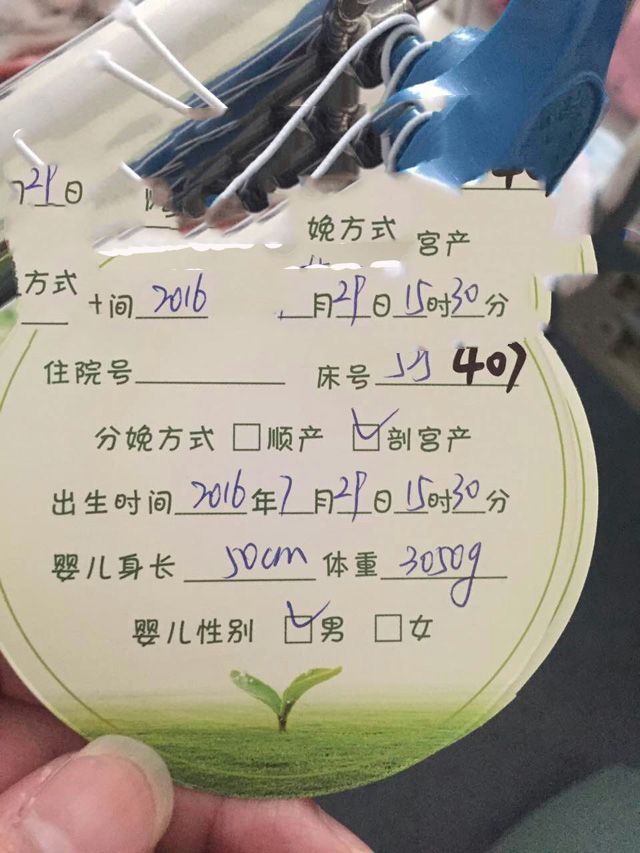 29日
娩方式 宫产
方式
间 2016 月29日15时30分
住院号 床号 407
分娩方式 □顺产 ☑剖宫产
出生时间 2016年7月29日15时30分
婴儿身长 50cm 体重 3050g
婴儿性别 ☑男 □女